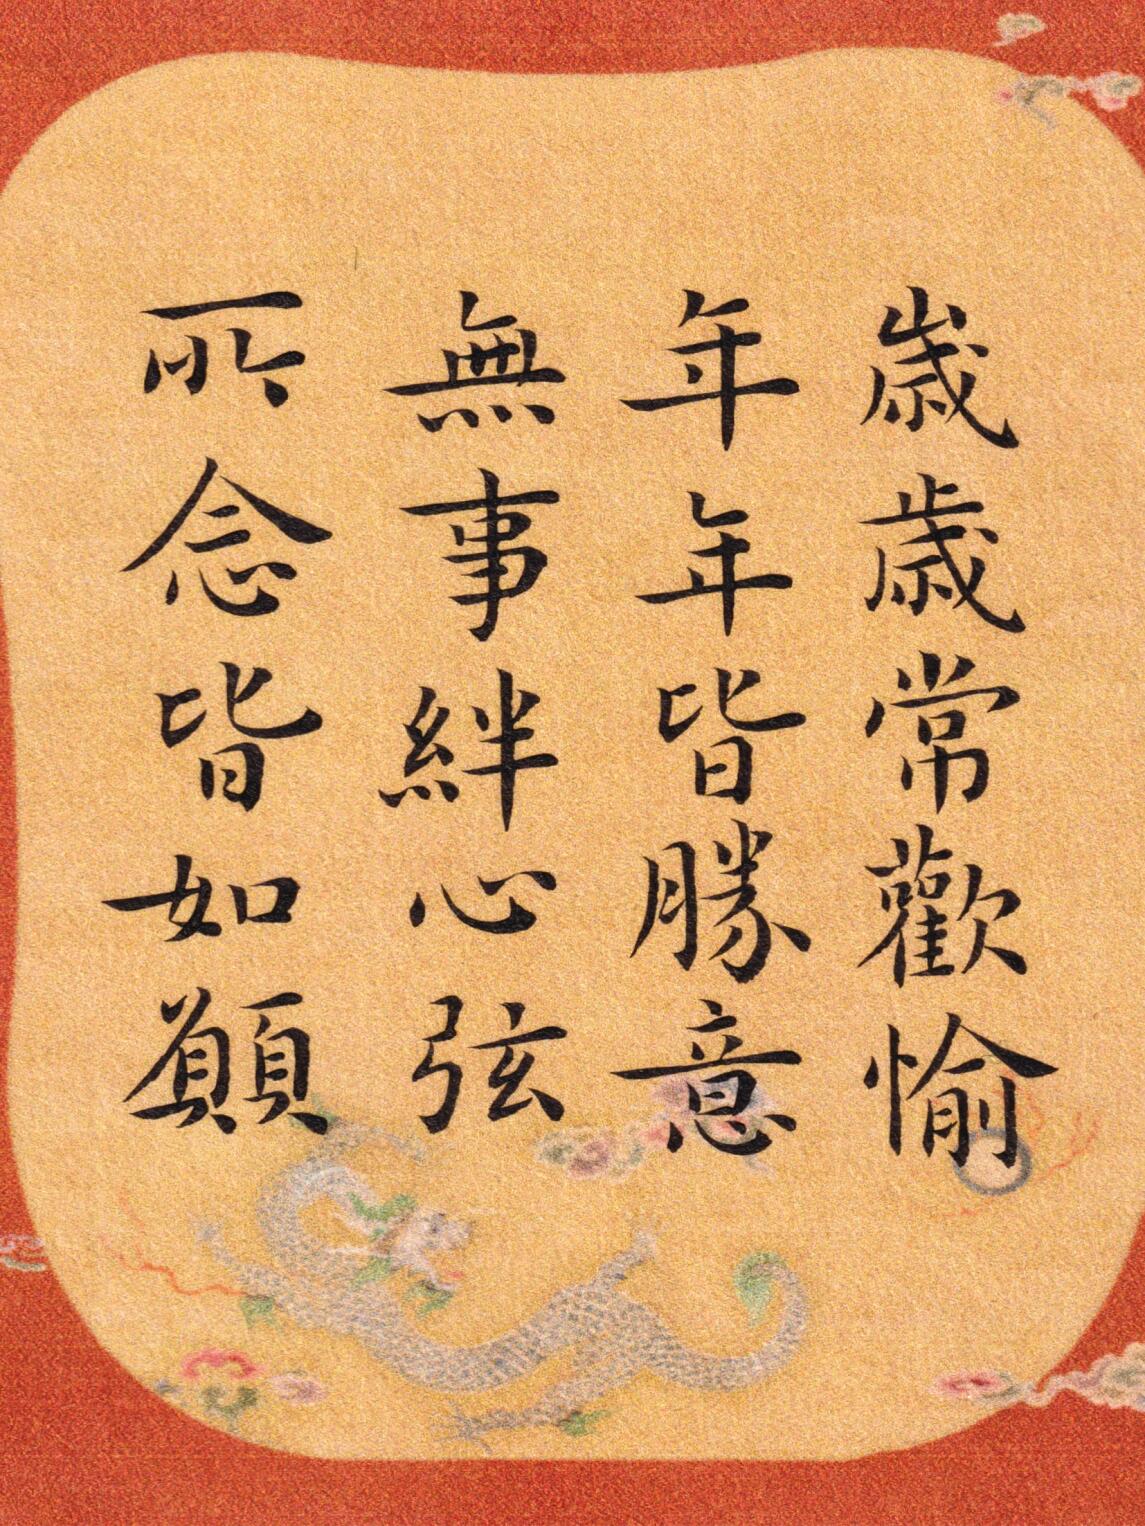 歲歲常歡愉
年年皆勝意
無事絆心弦
所念皆如願